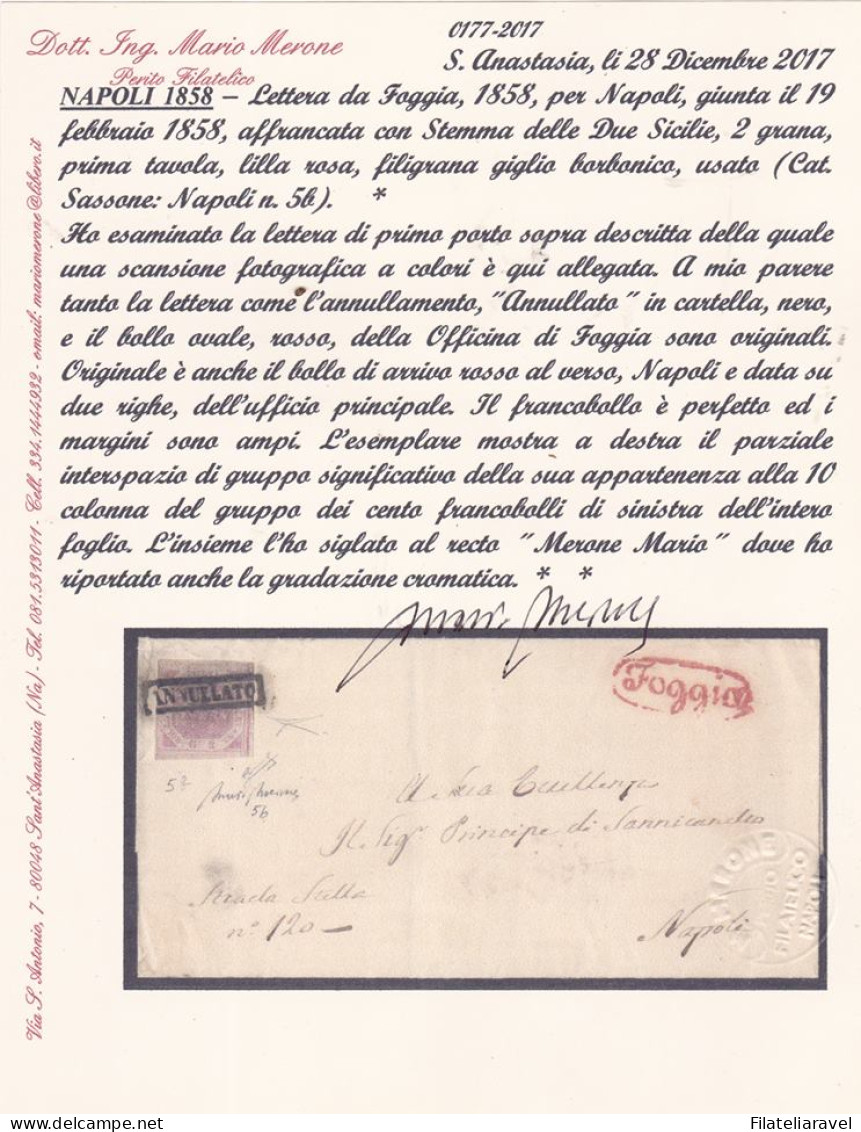 0177-2017
Dott. Ing. Mario Merone
Perito Filatelico
S. Anastasia, li 28 Dicembre 2017
NAPOLI 1858 – Lettera da Foggia, 1858, per Napoli, giunta il 19
febbraio 1858, affrancata con Stemma delle Due Sicilie, 2 grana,
prima tavola, lilla rosa, filigrana giglio borbonico, usato (Cat.
Sassone: Napoli n. 5b). *
Ho esaminato la lettera di primo porto sopra descritta della quale
una scansione fotografica a colori è qui allegata. A mio parere
tanto la lettera come l'annullamento, "Annullato" in cartella, nero,
e il bollo ovale, rosso, della Officina di Foggia sono originali.
Originale è anche il bollo di arrivo rosso al verso, Napoli e data su
due righe, dell'ufficio principale. Il francobollo è perfetto ed i
margini sono ampi. L'esemplare mostra a destra il parziale
interspazio di gruppo significativo della sua appartenenza alla 10
colonna del gruppo dei cento francobolli di sinistra dell'intero
foglio. L'insieme l'ho siglato al recto "Merone Mario" dove ho
riportato anche la gradazione cromatica. * *
Via S. Antonio, 7 - 80048 Sant'Anastasia (Na) - Tel. 081.5313011 - Cell. 334.1444932 - email: mariomerone@libero.it
Mario Merone
ANNULLATO
Foggia
5b
A Sua Eccellenza
Il Sigr Principe di Sannicandro
Strada Stella
n° 120
Napoli
MERONE
MARIO
FILATELICO
NAPOLI
www.filateliaravel.com
Filateliaravel